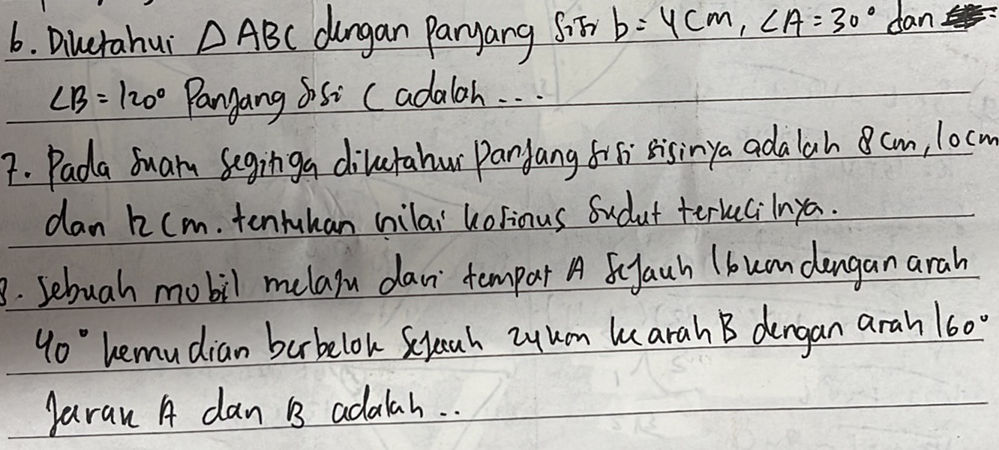 6. Diketahui △ ABC dengan panjang sisi b = 4 cm, ∠A = 30° dan
∠B = 120° Panjang sisi C adalah ...
7. Pada suatu segitiga diketahui panjang sisi sisinya adalah 8 cm, 10 cm
dan 12 cm. tentukan nilai kosinus sudut terkecilnya.
8. Sebuah mobil melaju dari tempat A sejauh 16 km dengan arah
40° kemudian berbelok sejauh 24 km ke arah B dengan arah 160°
Jarak A dan B adalah ..